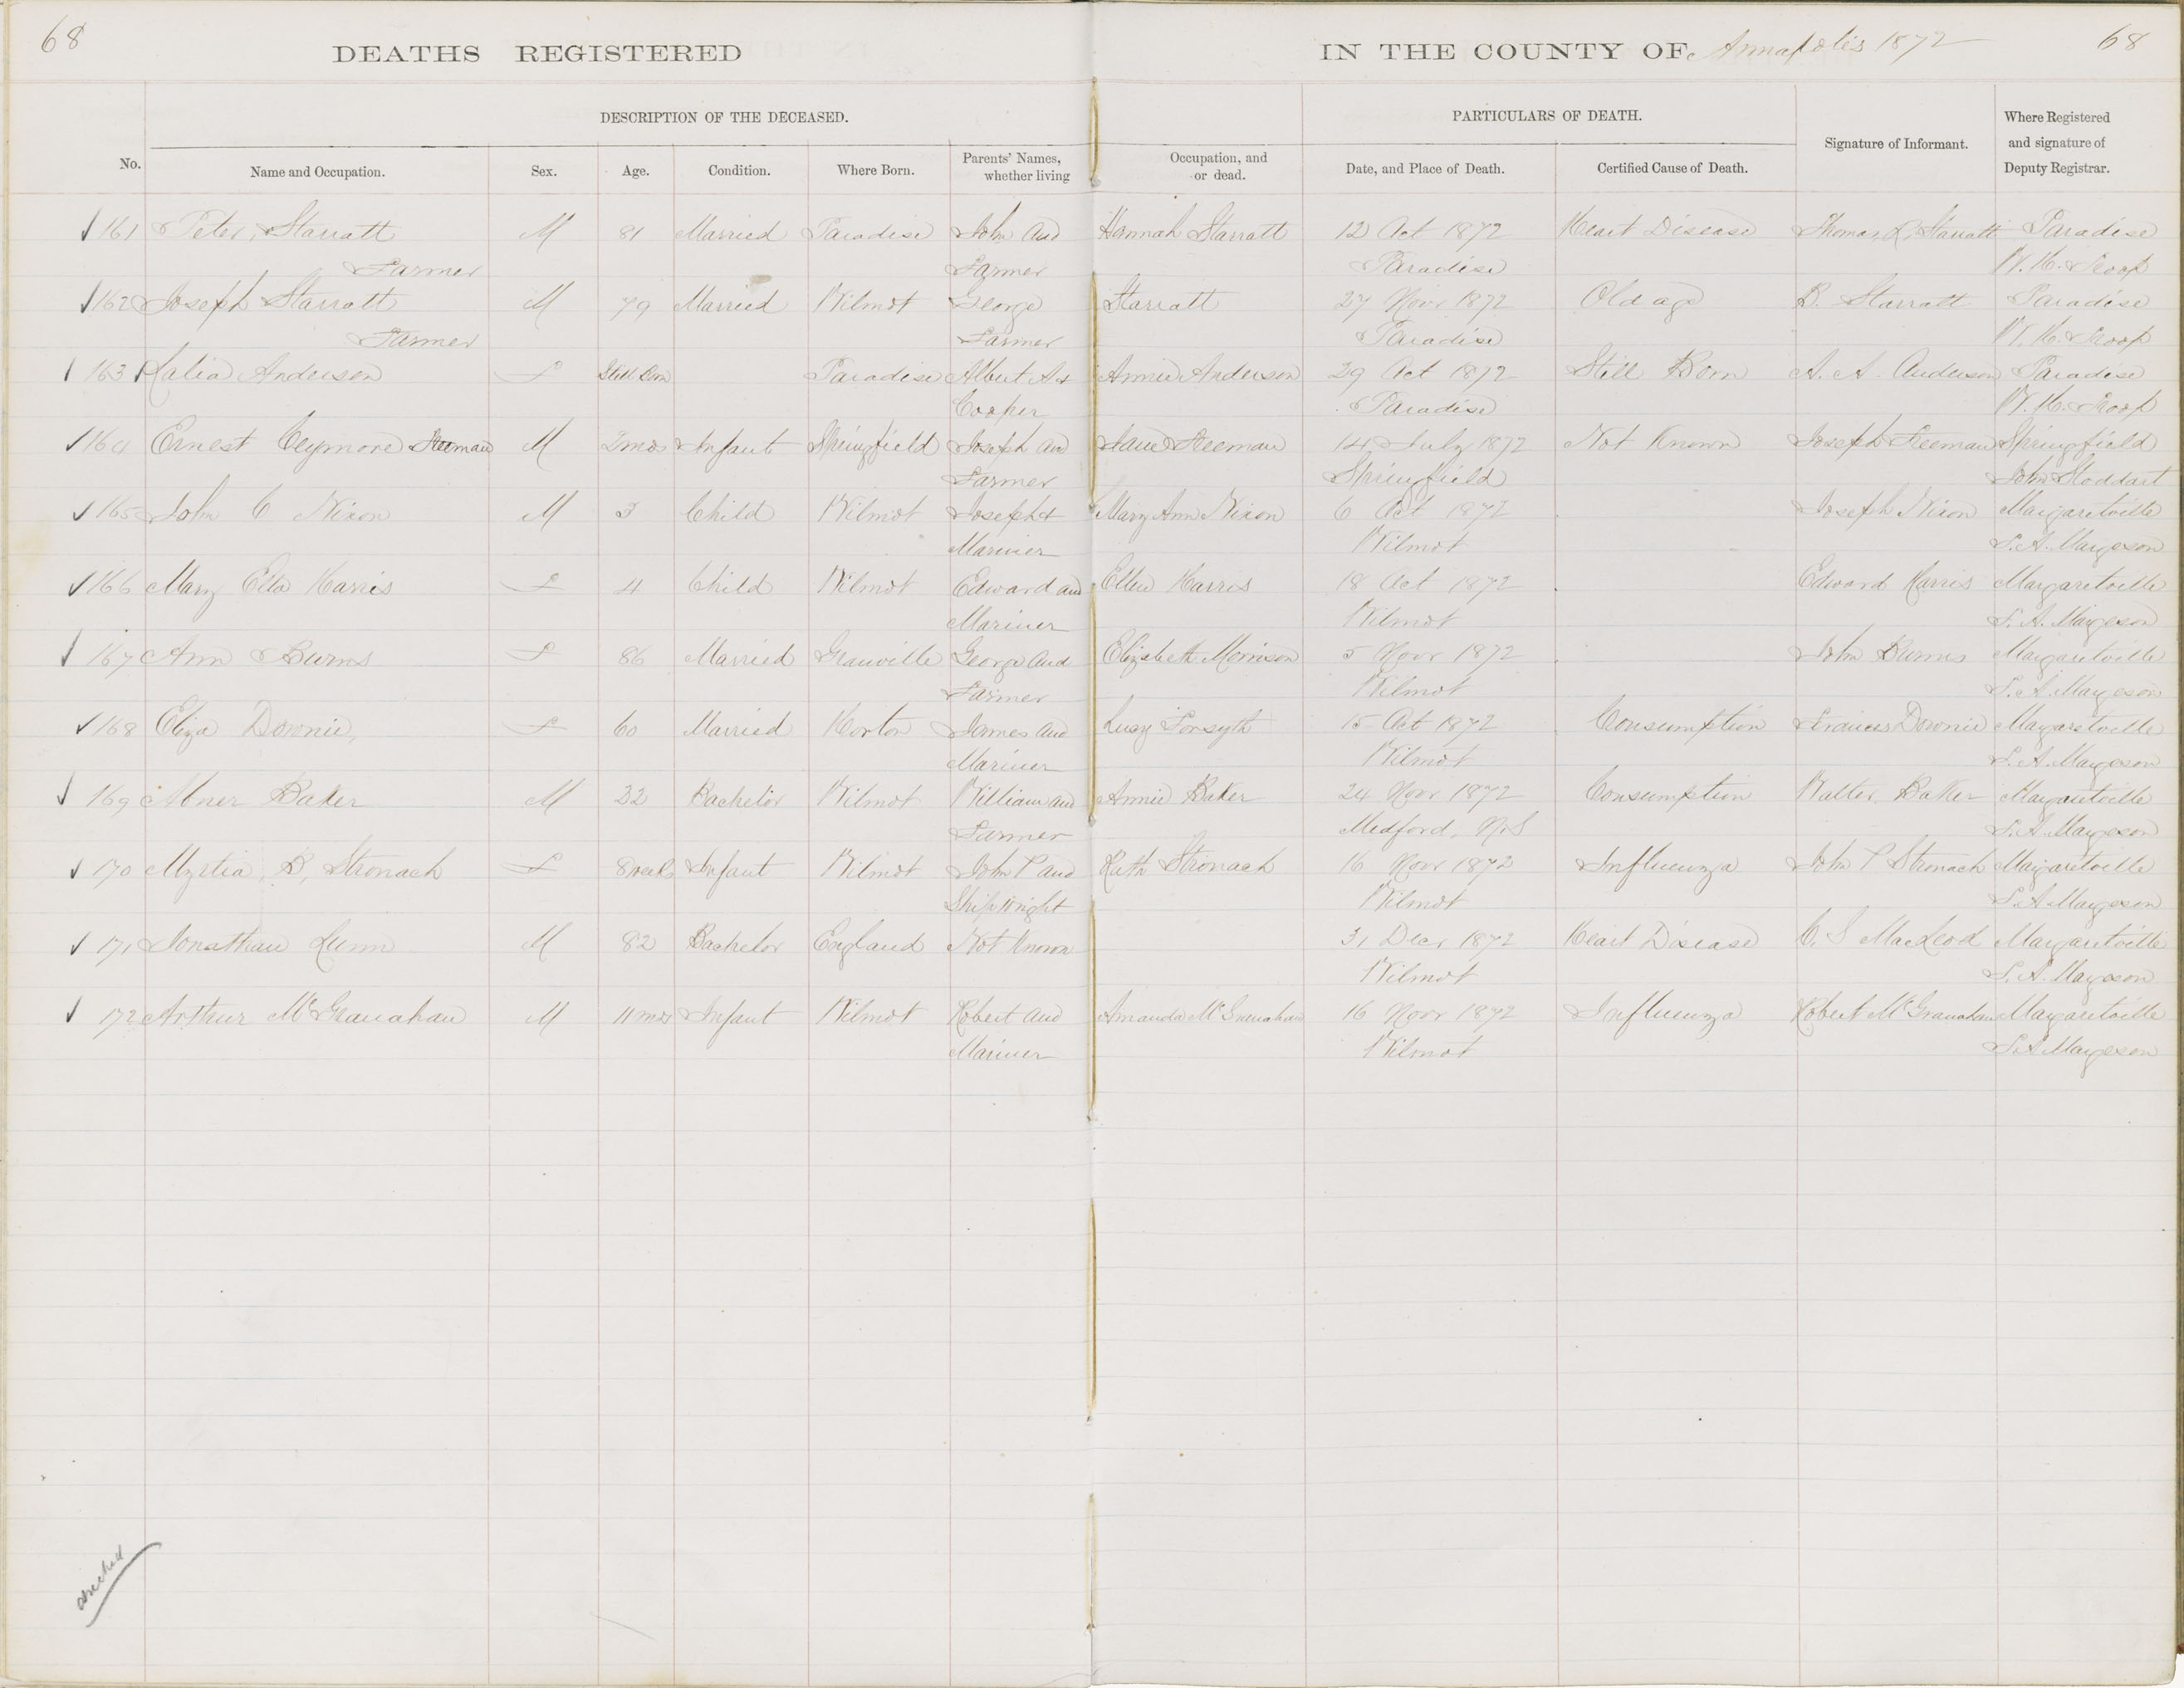 68
DEATHS REGISTERED IN THE COUNTY OF Annapolis 1872
68
DESCRIPTION OF THE DECEASED.
PARTICULARS OF DEATH.
No.
Name and Occupation.
Sex.
Age.
Condition.
Where Born.
Parents' Names, whether living
Occupation, and or dead.
Date, and Place of Death.
Certified Cause of Death.
Signature of Informant.
Where Registered and signature of Deputy Registrar.
161 Peter Starratt M 81 Married Paradise John and Hannah Starratt 12 Oct 1872 Heart Disease Thomas R. Starratt Paradise
Farmer Farmer Paradise W. H. Troop
162 Joseph Starratt M 79 Married Wilmot George Starratt 27 Novr 1872 Old age B. Starratt Paradise
Farmer Farmer Paradise W. H. Troop
163 Anderson F Still Born Paradise Albert A & Annie Anderson 29 Oct 1872 Still Born A. A. Anderson Paradise
Cooper Paradise W. H. Troop
164 Ernest Ceymore Freeman M 2 mos Infant Springfield Joseph and Jane Freeman 14 July 1872 Not Known Joseph Freeman Springfield
Farmer Springfield John Stoddart
165 John C Nixon M 3 Child Wilmot Joseph & Mary Ann Nixon 6 Oct 1872 Joseph Nixon Margaretville
Mariner Wilmot S. A. Margeson
166 Mary Ella Harris F 4 Child Wilmot Edward and Ellen Harris 18 Oct 1872 Edward Harris Margaretville
Mariner Wilmot S. A. Margeson
167 Ann Burns F 86 Married Granville George and Elizabeth Morrison 5 Novr 1872 John Burns Margaretville
Farmer Wilmot S. A. Margeson
168 Eliza Downie, F 60 Married Horton James and Lucy Forsyth 15 Oct 1872 Consumption Frances Downie Margaretville
Mariner Wilmot S. A. Margeson
169 Abner Baker M 22 Bachelor Wilmot William and Annie Baker 24 Novr 1872 Consumption Walter Baker Margaretville
Farmer Medford, N.S S. A. Margeson
170 Myrtia B, Stronach F 8 weeks Infant Wilmot John P and Ruth Stronach 16 Novr 1872 Influenza John P Stronach Margaretville
Ship Wright Wilmot S. A Margeson
171 Jonathan Lunn M 82 Bachelor England Not Known 31 Decr 1872 Heart Disease C. S MacLeod Margaretville
Wilmot S. A. Margeson
172 Arthur McGranahan M 11 mos Infant Wilmot Robert and Amanda McGranahan 16 Novr 1872 Influenza Robert McGranahan Margaretville
Mariner Wilmot S. A Margeson